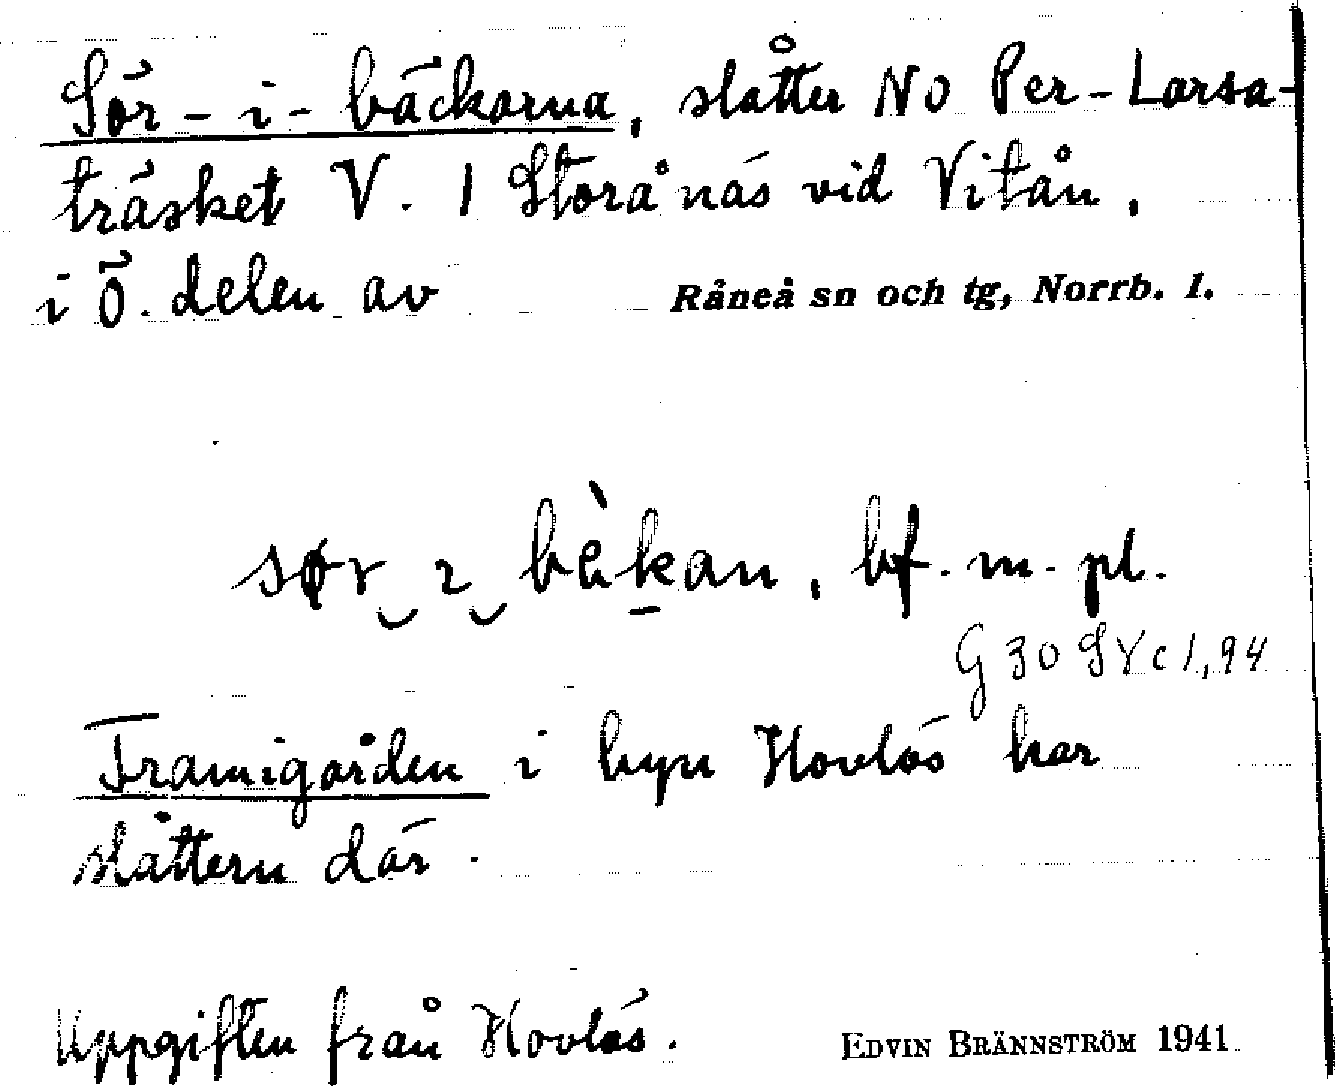 Sör-i-bäckarna, slåtter NO Per-Larsa-
träsket V. 1 Storånäs vid Vitån,
i Ö. delen av Råneå sn och tg, Norrb. l.
sør ɩ bὲkan, bf. m. pl.
G 30 SV c 1, 94
Framigården i byn Hovlös har
slåttern där.
Uppgiften från Hovlös.
EDVIN BRÄNNSTRÖM 1941